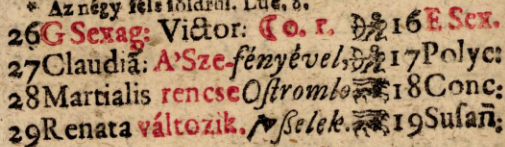 * Az négy féle földről. Luc. 8.
26 G Sexag: Victor: ☾ o. r. 16 E Sex.
27 Claudiã: A'Sze-fényével, 17 Polyc:
28 Martialis rencse Oſtromlo 18 Conc:
29 Renata változik. ßelek. 19 Suſañ: